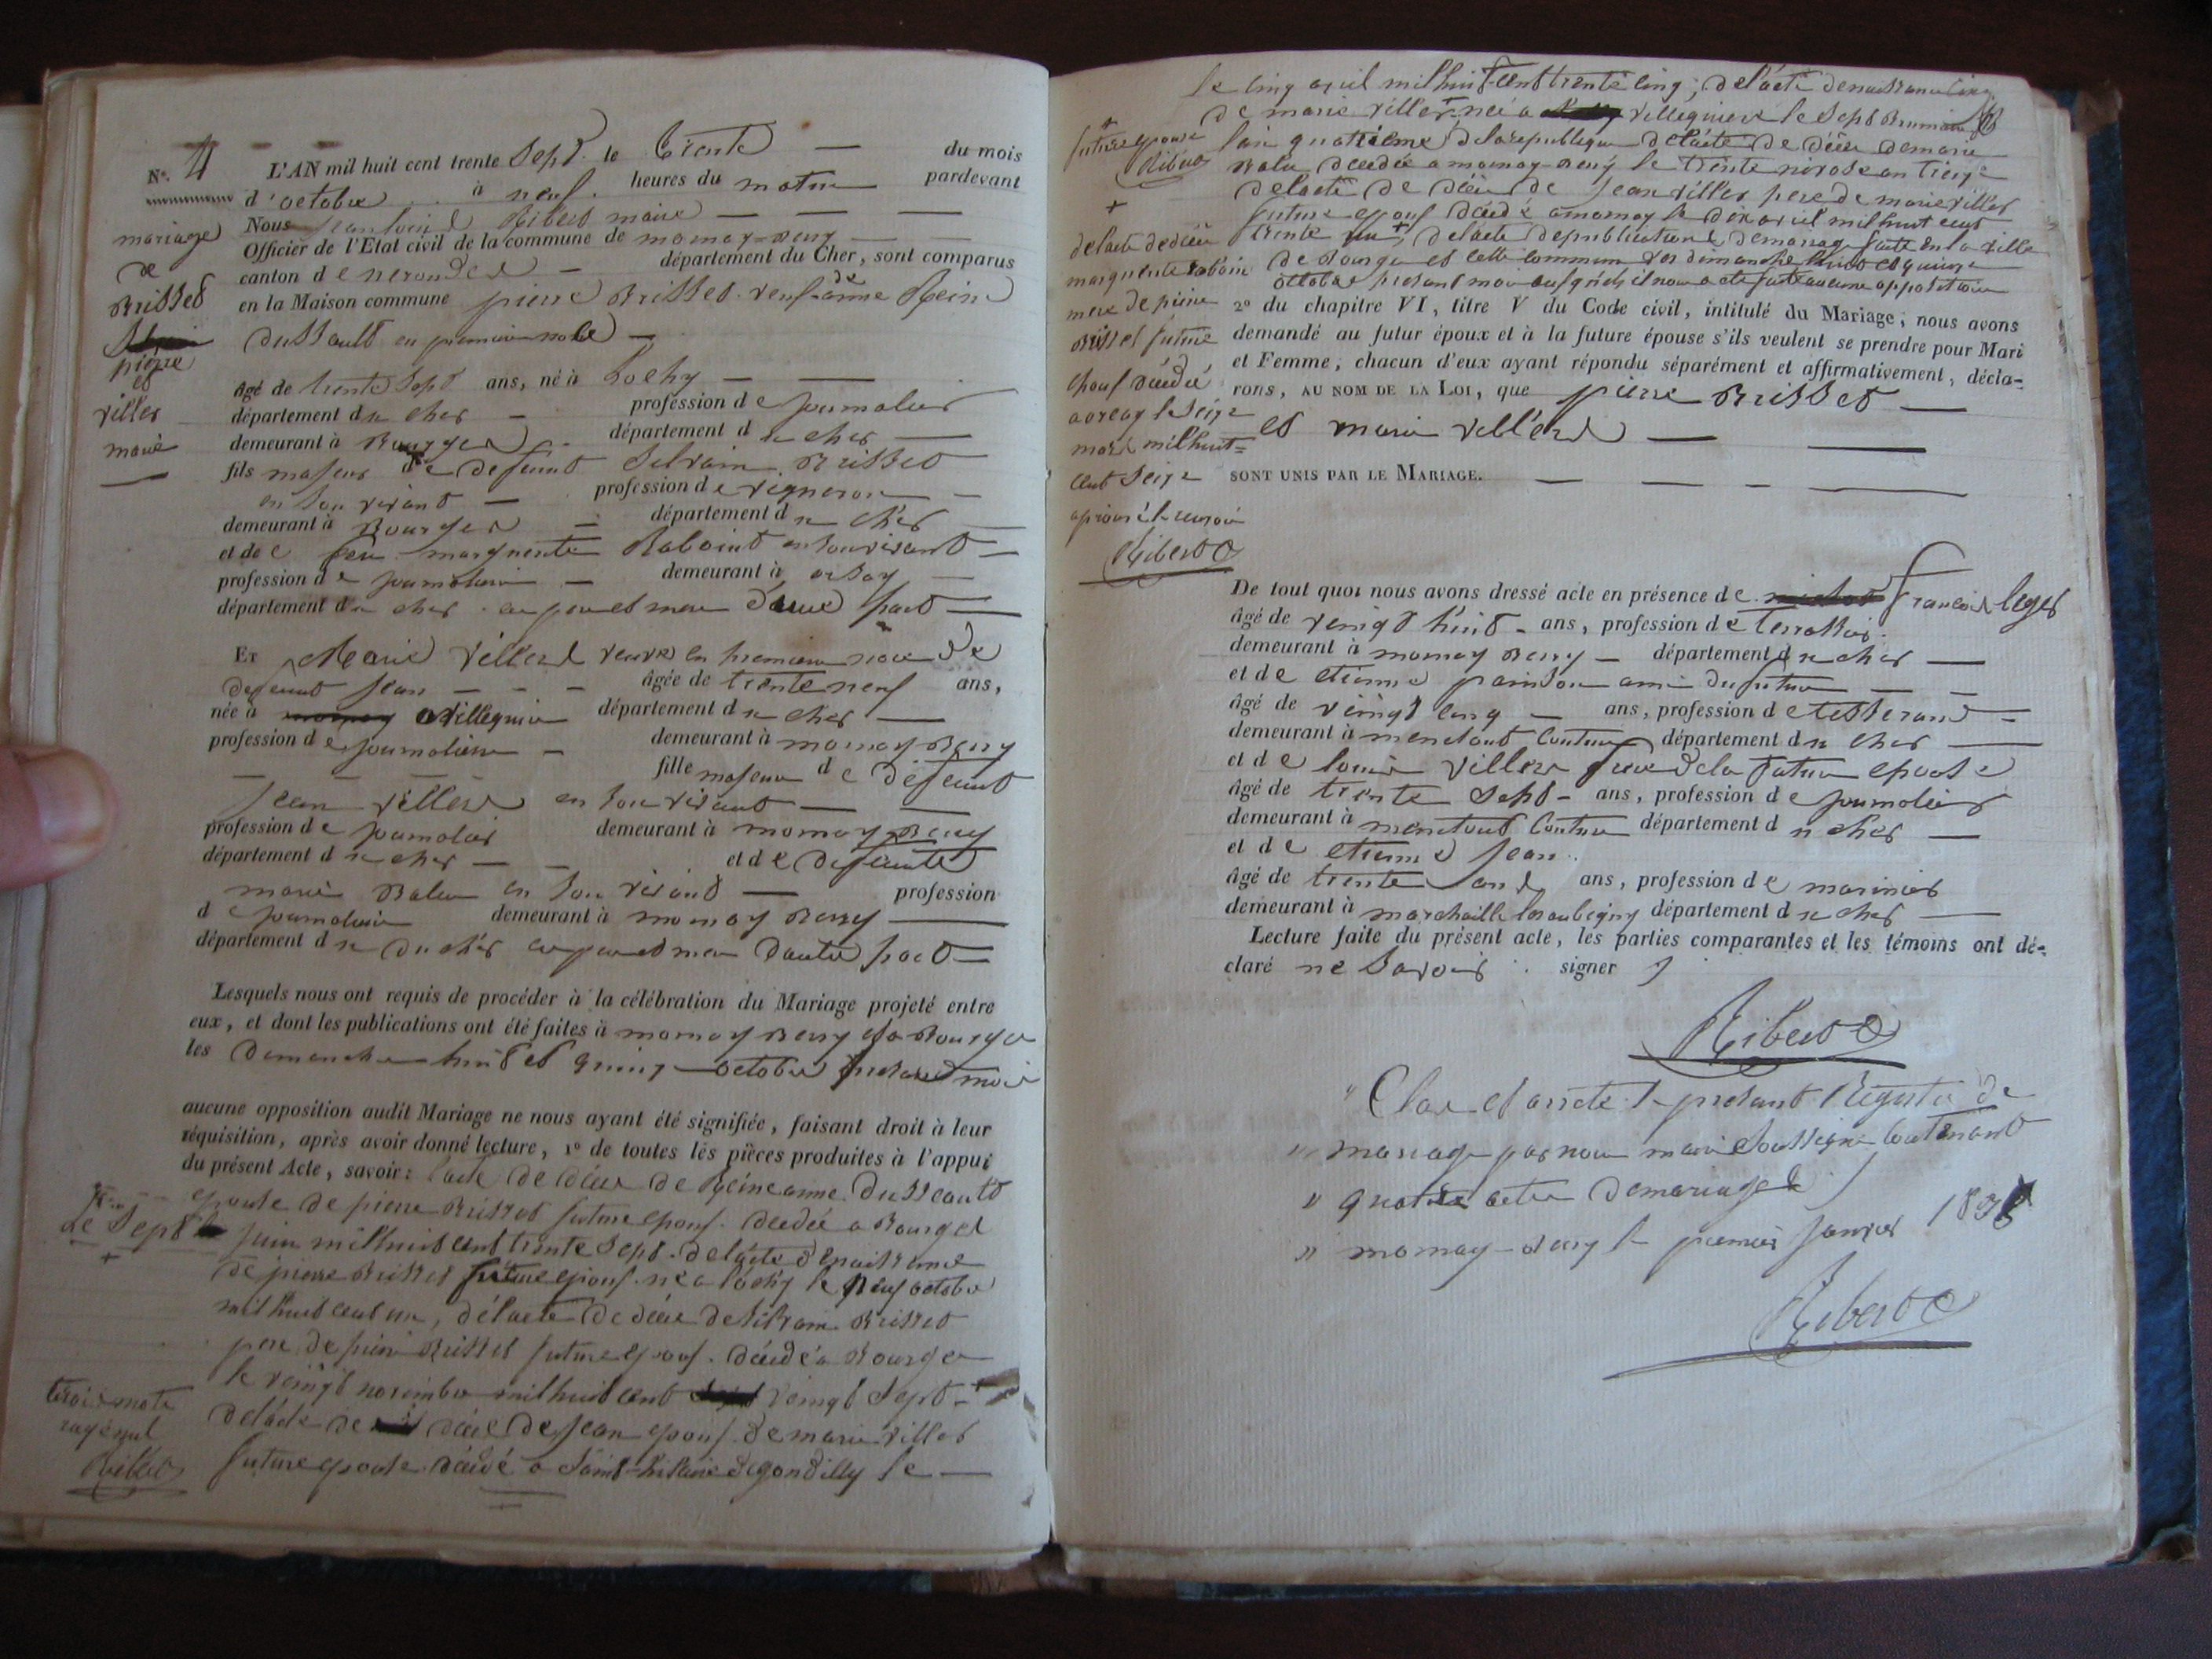 N°. 4
mariage
de
Brisset
pierre
et
villers
marie
L'AN mil huit cent trente Sept le trente — du mois
d'octobre à neuf heures du matin pardevant
Nous Jean louis Ribert maire — — —
Officier de l'Etat civil de la commune de mornay-Berry
canton de nerondes — département du Cher, sont comparus
en la Maison commune pierre Brisset veuf de anne Reine
dussault en premiere noce —
âgé de trente Sept ans, né à Lochy — —
département du cher — profession de journalier
demeurant à Bourges — département du cher —
fils majeur de defunt Silvain Brisset
en son vivant — profession de vigneron —
demeurant à Bourges — département du cher
et de feu marguerite Raboint en son vivant —
profession de journaliere — demeurant à
département du cher ses pere et mere d'une part —
Et Marie Villers veuve en premiere noce de
defunt Jean — — — âgée de trente neuf ans,
née à villequier département du cher —
profession de journaliere — demeurant à mornay Berry
— — — — fille majeure de défunt
Jean villers en son vivant — —
profession de journalier demeurant à mornay Berry
département du cher — — et de defunte
marie Balu en son vivant — profession
de journaliere demeurant à mornay Berry —
département du du cher ses pere et mere d'autre part —
Lesquels nous ont requis de procéder à la célébration du Mariage projeté entre
eux, et dont les publications ont été faites à mornay Berry et a Bourges
les dimanche huit et quinze octobre present mois
aucune opposition audit Mariage ne nous ayant été signifiée, faisant droit à leur
réquisition, après avoir donné lecture, 1° de toutes les pièces produites à l'appui
du présent Acte, savoir: l'acte de décès de Reine anne dusseault
epouse de pierre Brisset future epouf. decedée a Bourges
Le Sept juin mil huit cent trente Sept. de l'acte de naissance
+
de pierre Brisset future epouf. né a lochy le neuf octobre
mil huit cent un, de l'acte de décès de Silvain Brisset
pere de pierre Brisset future epouf. décédé a Bourges
le veingt novembre mil huit cent veingt Sept - +
de l'acte de décès de Jean epouf. de marie villers
future epouse décédé a Saint-hilaire de gondilly le —
trois mots
rayé nul
Ribert
le cinq avril mil huit cent trente cinq; de l'acte de naissance
de marie villers + née a villequiers le Sept Brumaire
l'an quatrieme de la republique de l'acte de décès de marie
Balu decedée a mornay-Berry le trente nivose an treize
de l'acte de décès de Jean villers pere de marie villers
future epouf décédé a mornay le dix avril mil huit cent
trente un +, de l'acte de publications de mariage faite en la ville
de Bourges et cette commune les dimanche huit et quinze
octobre present mois auxquels il nous a été faite aucune opposition
+
future epouse
Ribert
+
de l'acte de décès
marguerite Raboin
mere de pierre
Brisset future
epouf décédée
le Seize
mars mil huit=
cent Seize
aprouvé le renvoi
Ribert
2° du chapitre VI, titre V du Code civil, intitulé du Mariage; nous avons
demandé au futur époux et à la future épouse s'ils veulent se prendre pour Mari
et Femme, chacun d'eux ayant répondu séparément et affirmativement, décla-
rons, AU NOM DE LA LOI, que pierre Brisset —
et marie villers — —
SONT UNIS PAR LE MARIAGE. — — — —
De tout quoi nous avons dressé acte en présence de francois leger
âgé de veingt huit - ans, profession de terrassier.
demeurant à mornay Berry — département du cher —
et de etienne painson ami du futur — —
âgé de veingt cinq — ans, profession de tisserand —
demeurant à menetout Couture département du cher —
et de louis villers frere de la future epouse
âgé de trente Sept - ans, profession de journalier
demeurant à menetout Couture département du cher —
et de etienne Jean.
âgé de trente ans ans, profession de marinier
demeurant à marchaille les aubigny département du cher —
Lecture faite du présent acte, les parties comparantes et les témoins ont dé-
claré ne Savoir signer
Ribert
" Clos et arrete le present Registre de
" mariage par nous maire Soussigné Contenant
" quatre actes de mariages
" mornay-Berry le premier janvier 1838
Ribert